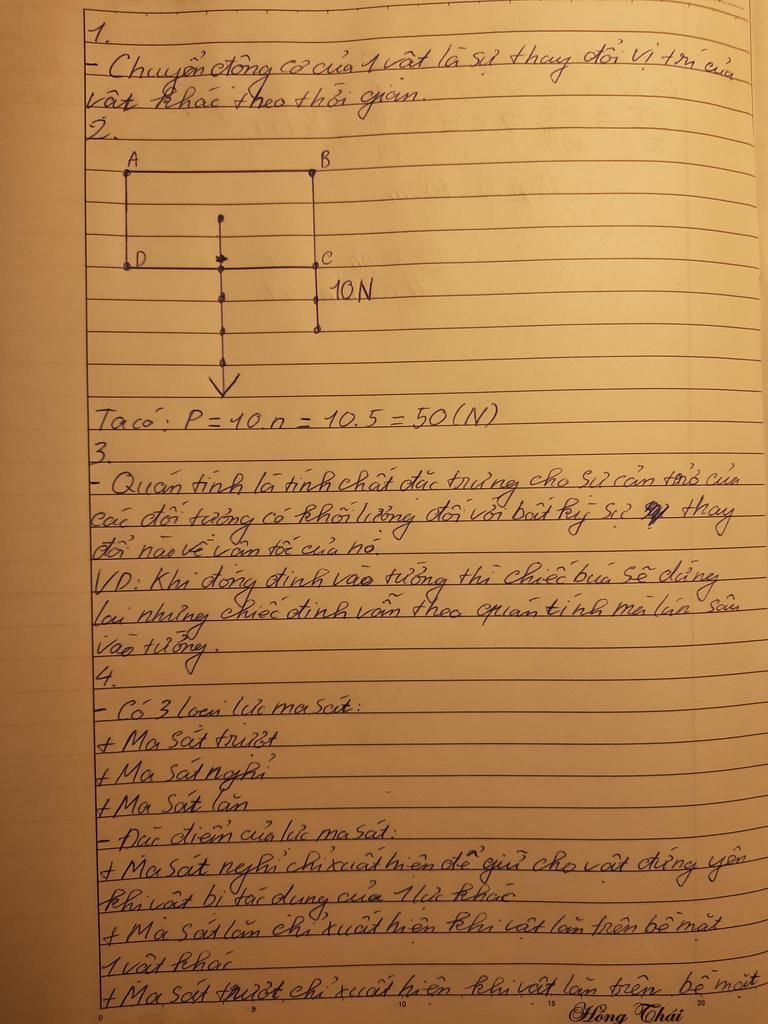 1.
- Chuyển động cơ của 1 vật là sự thay đổi vị trí của
vật khác theo thời gian.
2.
A B
D C
10N
Ta có: P = 10.n = 10.5 = 50 (N)
3.
- Quán tính là tính chất đặc trưng cho sự cản trở của
các đối tượng có khối lượng đối với bất kỳ sự thay
đổi nào về vận tốc của nó.
VD: Khi đóng đinh vào tường thì chiếc búa sẽ dừng
lại nhưng chiếc đinh vẫn theo quán tính mà lún sâu
vào tường.
4.
- Có 3 loại lực ma sát:
+ Ma sát trượt
+ Ma sát nghỉ
+ Ma sát lăn
- Đặc điểm của lực ma sát:
+ Ma sát nghỉ chỉ xuất hiện để giữ cho vật đứng yên
khi vật bị tác dụng của 1 lực khác
+ Ma sát lăn chỉ xuất hiện khi vật lăn trên bề mặt
1 vật khác
+ Ma sát trượt chỉ xuất hiện khi vật lăn trên bề mặt
0 5 10 15 20
Hồng Thái